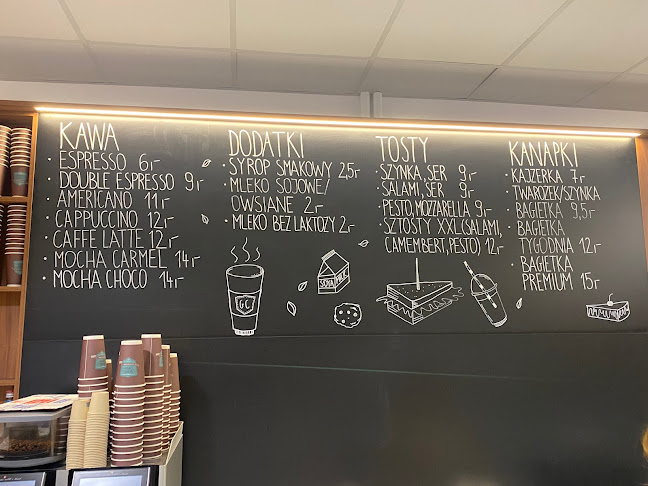 KAWA
• ESPRESSO 6,-
DOUBLE ESPRESSO 9,-
• AMERICANO 11,-
• CAPPUCCINO 12,-
• CAFFE LATTE 12,-
• MOCHA CARMEL 14,-
• MOCHA CHOCO 14,-
DODATKI
• SYROP SMAKOWY 2,5,-
• MLEKO SOJOWE/
OWSIANE 2,-
• MLEKO BEZ LAKTOZY 2,-
GC
SOJA MILK
TOSTY
• SZYNKA, SER 9,-
• SALAMI, SER 9,-
• PESTO, MOZZARELLA 9,-
• SZTOSTY XXL (SALAMI,
CAMEMBERT, PESTO) 12,-
KANAPKI
• KAJZERKA 7,-
TWAROŻEK/SZYNKA
• BAGIETKA 9,5,-
• BAGIETKA
TYGODNIA 12,-
• BAGIETKA
PREMIUM 15,-